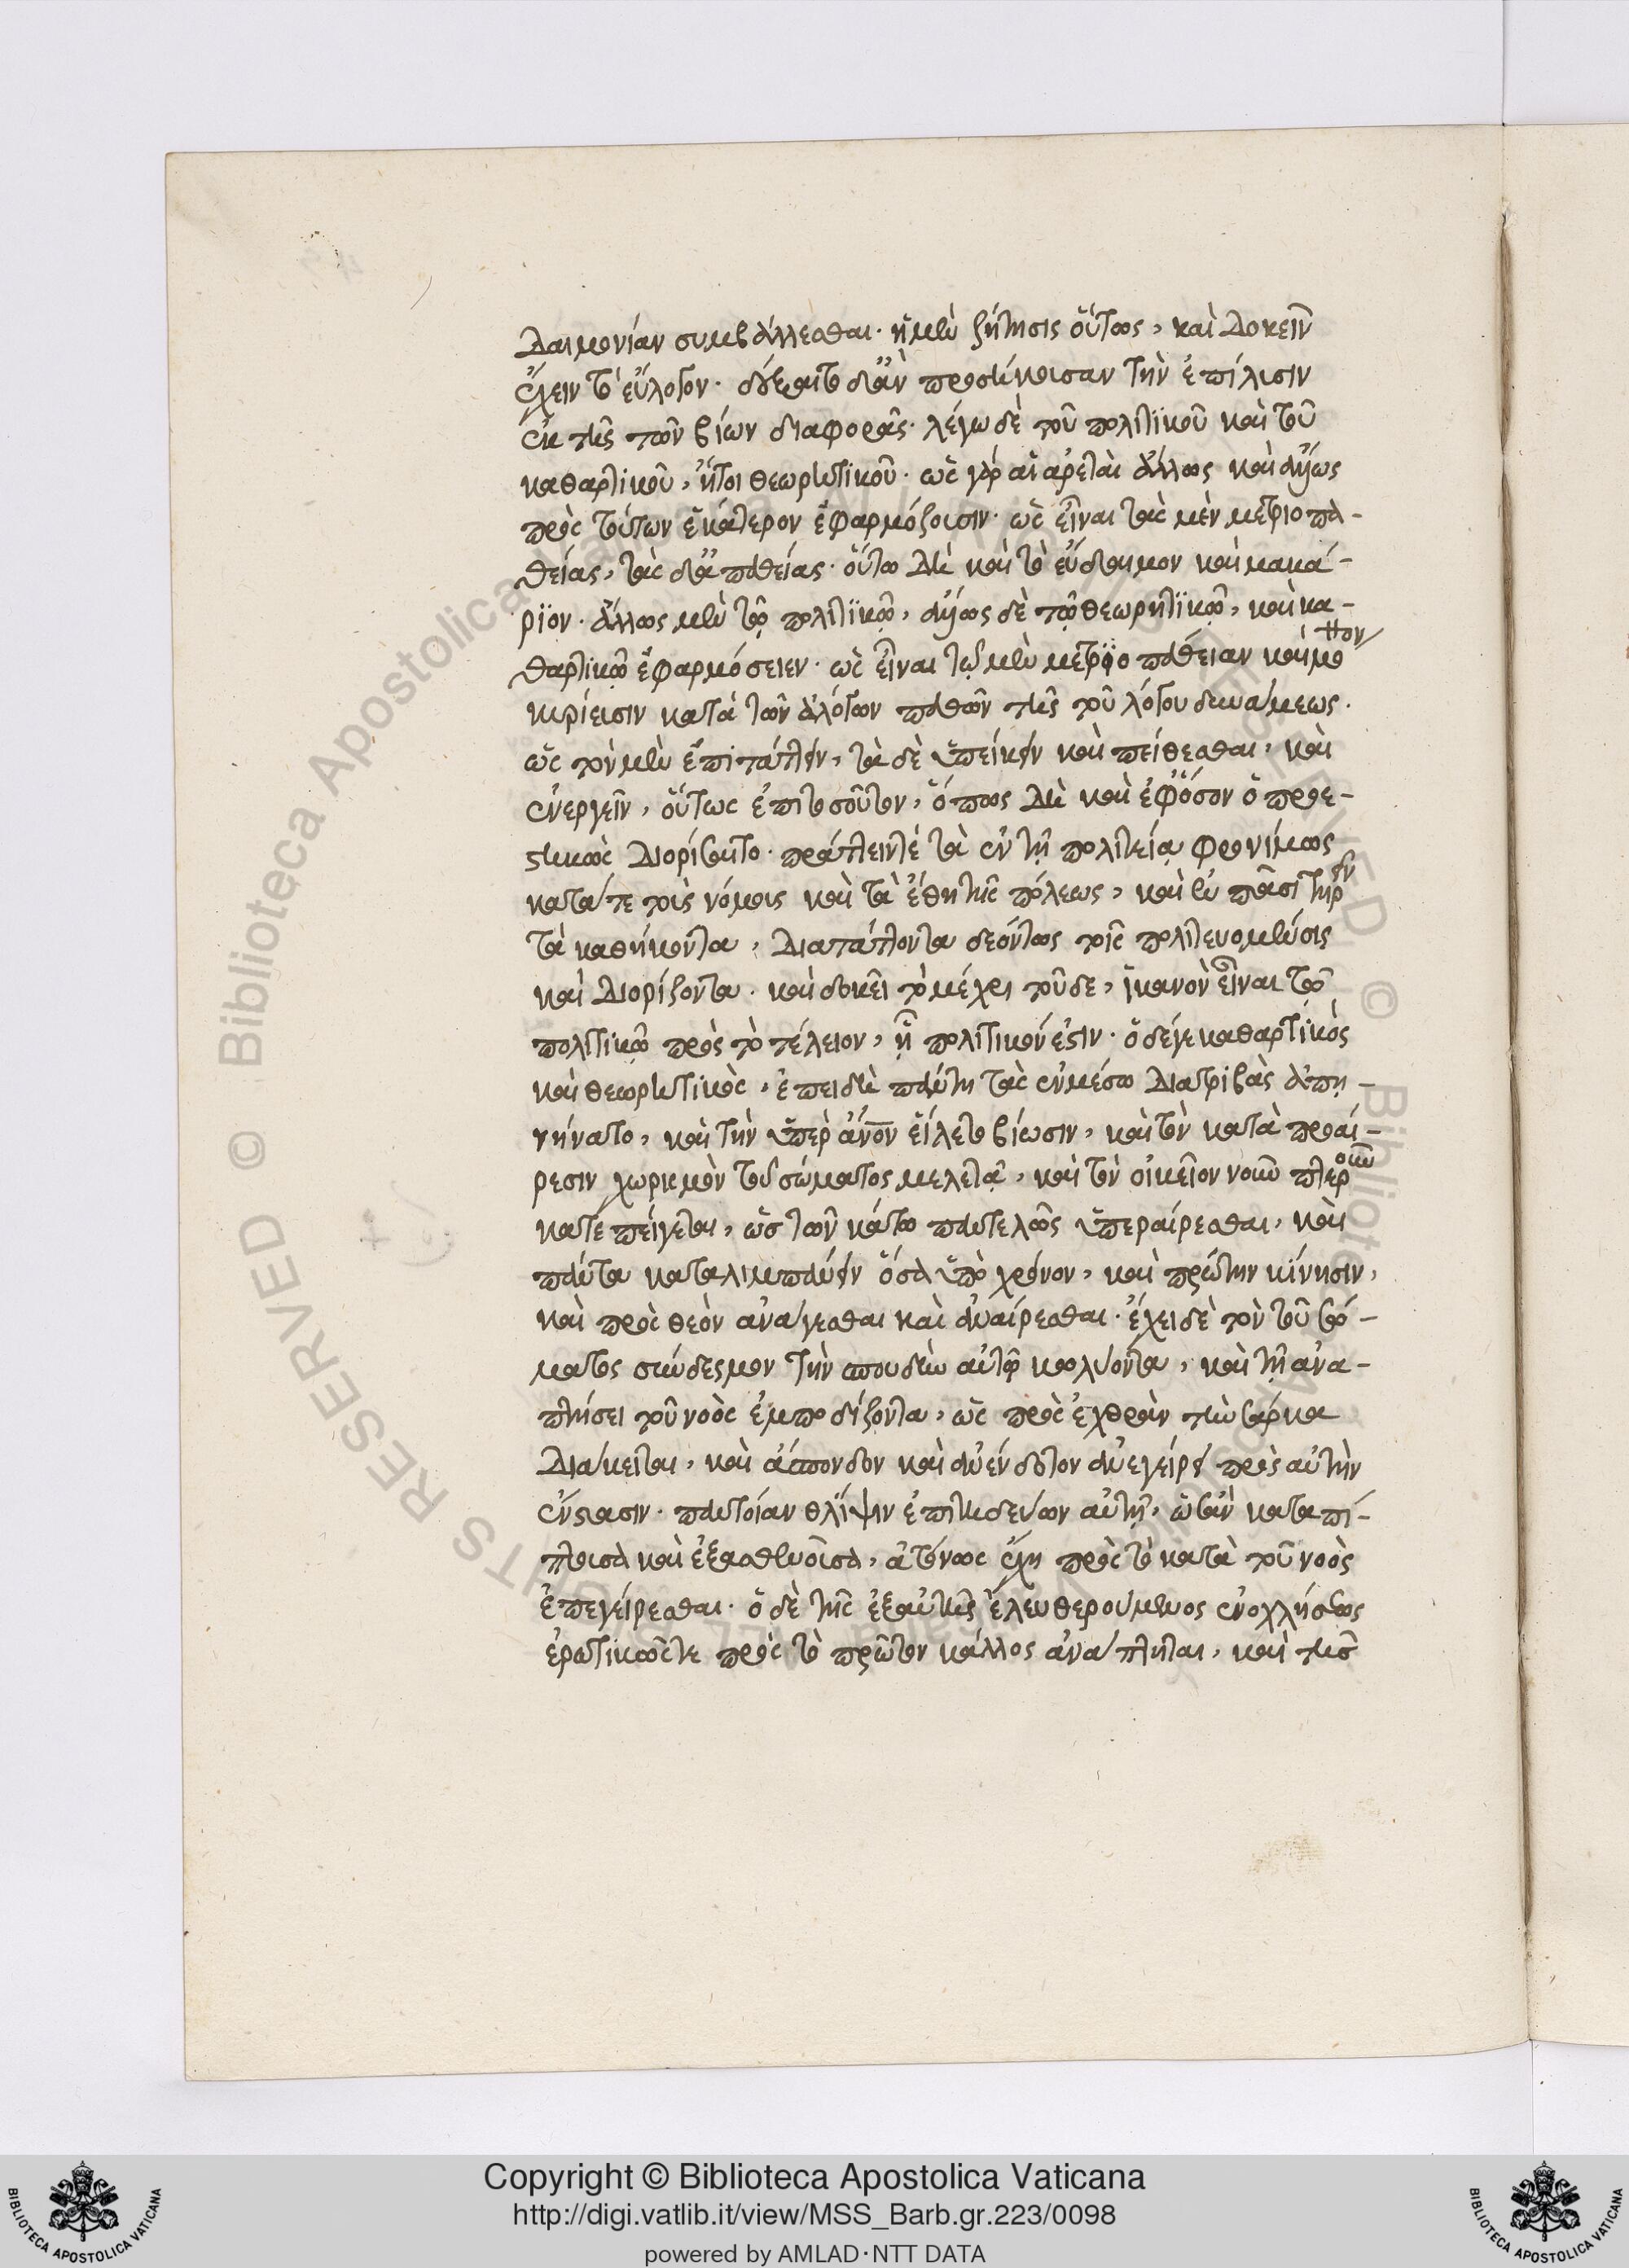 δαιμονίαν συμβάλλεσθαι· ἡ μὲν ζήτησις οὕτως, καὶ δοκεῖν
ἔχειν τὸ εὔλογον. δέξαιτο δ' ἂν προσήκουσαν τὴν ἐπίλυσιν
ἐκ τῆς τῶν βίων διαφορᾶς· λέγω δὲ τοῦ πολιτϊκοῦ καὶ τοῦ
καθαρτικοῦ, ἤτοι θεωρητϊκοῦ· ὡς γὰρ αἱ ἀρεταὶ ἄλλως καὶ ἄλλως
πρὸς τούτων ἑκάτερον ἐφαρμόζουσιν· ὡς εἶναι τὰς μὲν μετριοπα-
θείας, τὰς δ' ἀπαθείας· οὕτω δὴ καὶ τὸ εὔδαιμον καὶ μακά-
ρϊον· ἄλλως μὲν τῷ πολιτϊκῷ, ἄλλως δὲ τῷ θεωρητϊκῷ, καὶ κα-
θαρτϊκῷ ἐφαρμόσειεν· ὡς εἶναι τῷ μὲν μετρϊοπάθειαν καὶ μᾶττον
κυρίευσιν κατὰ τῶν ἀλόγων παθῶν τῆς τοῦ λόγου δυνάμεως·
ὡς τὸν μὲν ἐπιτάττειν, τὰ δὲ ὑπείκειν καὶ πείθεσθαι, καὶ
ἐνεργεῖν, οὕτως ἐπὶ τοσοῦτον, ὅπως δὴ καὶ ἐφ' ὅσον ὁ προε-
στηκὼς διορίσαιτο· πράττειν τὲ τὰ ἐν τῇ πολιτείᾳ φρονίμως
κατά τε τοὺς νόμους καὶ τὰ ἔθη τῆς πόλεως, καὶ ἐν πᾶσι τηρεῖν
τὰ καθήκοντα, διατάττοντα δεόντως τοῖς πολιτευομένοις
καὶ διορίζοντα· καὶ δοκεῖ τὸ μέχρι τοῦδε, ἱκανὸν εἶναι τῷ
πολιτικῷ πρὸς τὸ τέλειον, ᾗ πολιτικόν ἐστιν· ὁ δέγε καθαρτϊκὸς
καὶ θεωρητϊκὸς, ἐπειδὴ πάντη τὰς ἐν μέσω διατριβὰς ἀπη-
νήνατο, καὶ τὴν ὑπὲρ ἄνον εἵλετο βίωσιν, καὶ τὸν κατὰ προαί-
ρεσιν χωρισμὸν τοῦ σώματος μελετᾷ, καὶ τὸν οἰκεῖον νοῦν πτεροῦν
κατεπείγεται, ὥστε τῶν κάτω παντελῶς ὑπεραίρεσθαι, καὶ
πάντα καταλιμπάνειν ὅσα ὑπὸ χρόνον, καὶ πρώτην κίνησιν,
καὶ πρὸς θεὸν ἀνάγεσθαι καὶ ἀναίρεσθαι· ἔχει δὲ τὸν τοῦ σώ-
ματος σύνδεσμον τὴν σπουδὴν αὐτῷ κωλύοντα, καὶ τῇ ἀνα-
πτήσει τοῦ νοὸς ἐμποδίζοντα, ὡς πρὸς ἐχθρὰν τὴν σάρκα
διάκειται, καὶ ἄσπονδον καὶ ἀνένδοτον ἀνεγείρει πρὸς αὐτὴν
ἔνστασιν· παντοίαν θλῖψιν ἐπιτηδεύων αὐτῇ, ὡς ἂν καταπί-
πτουσα καὶ ἐξασθενοῦσα, ἀτόνως ἔχῃ πρὸς τὸ κατὰ τοῦ νοὸς
ἐπεγείρεσθαι· ὁ δὲ τῆς ἐξ αὐτῆς ἐλευθερούμενος ἐνοχλήσεως
ἐρωτικῶς τε πρὸς τὸ πρῶτον κάλλος ἀνάπτηται, καὶ τῆς